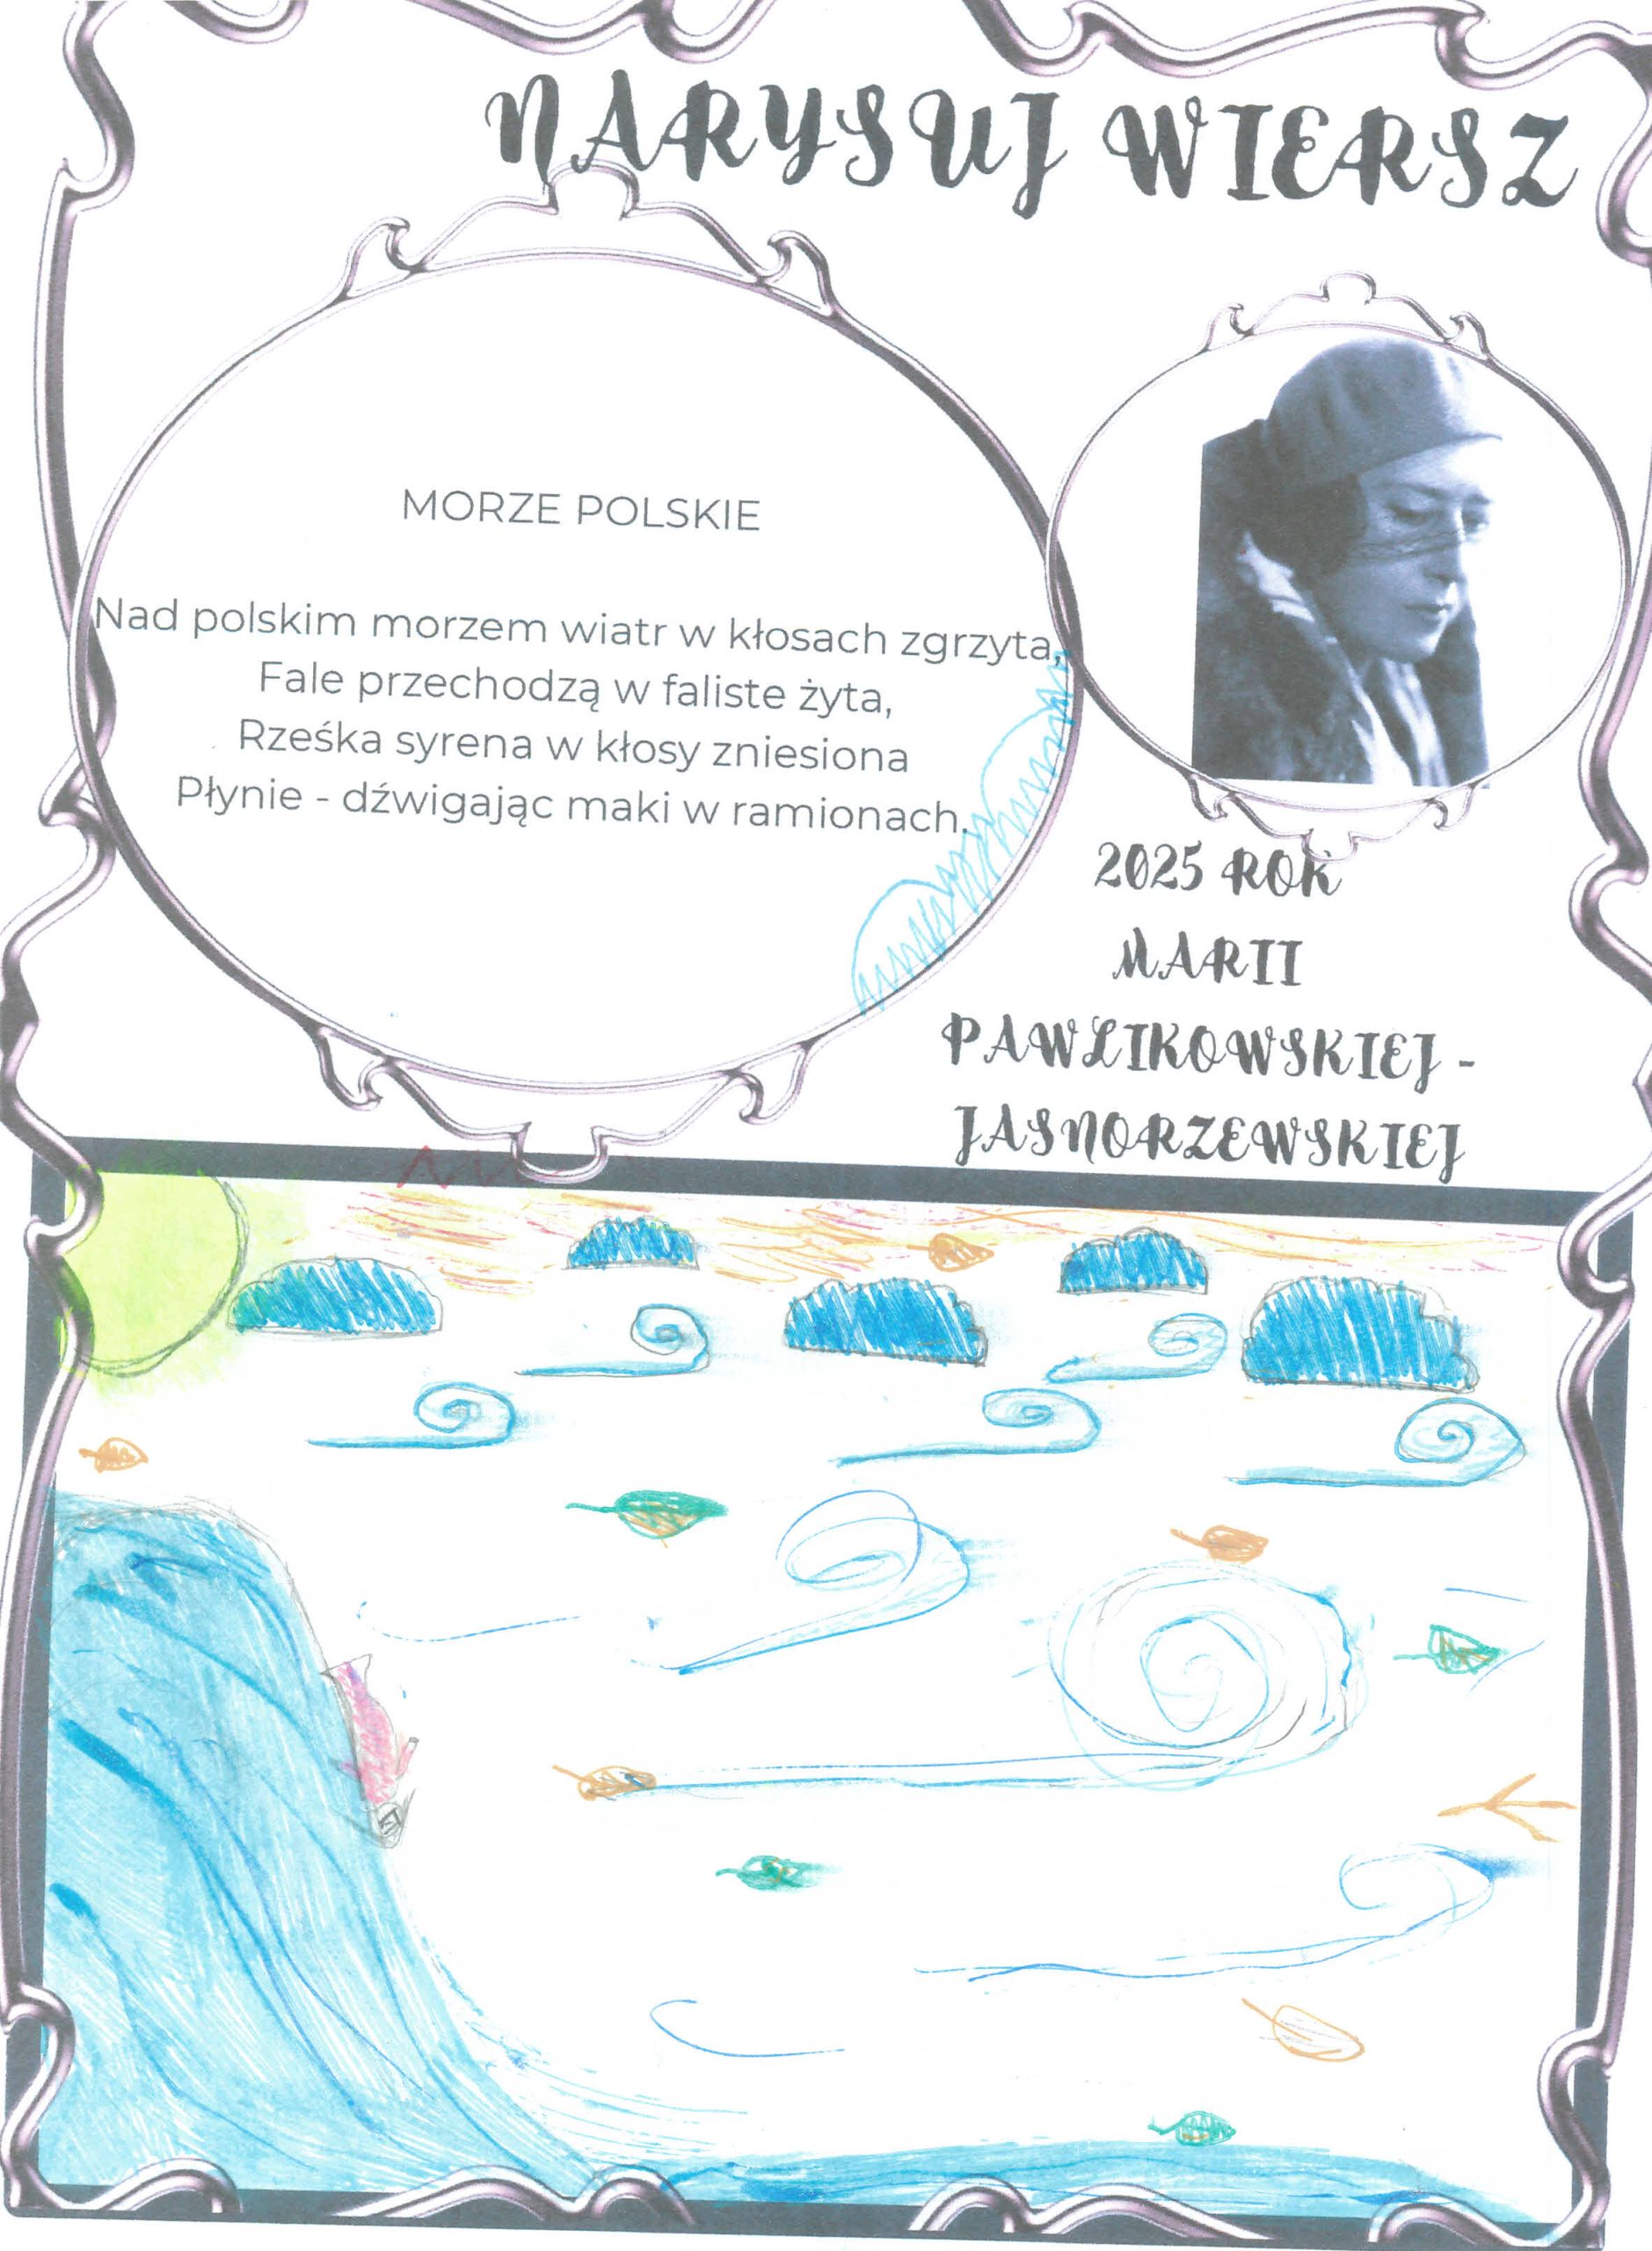 NARYSUJ WIERSZ
MORZE POLSKIE
Nad polskim morzem wiatr w kłosach zgrzyta,
Fale przechodzą w faliste żyta,
Rześka syrena w kłosy zniesiona
Płynie - dźwigając maki w ramionach.
2025 ROK
MARII
PAWLIKOWSKIEJ -
JASNORZEWSKIEJ